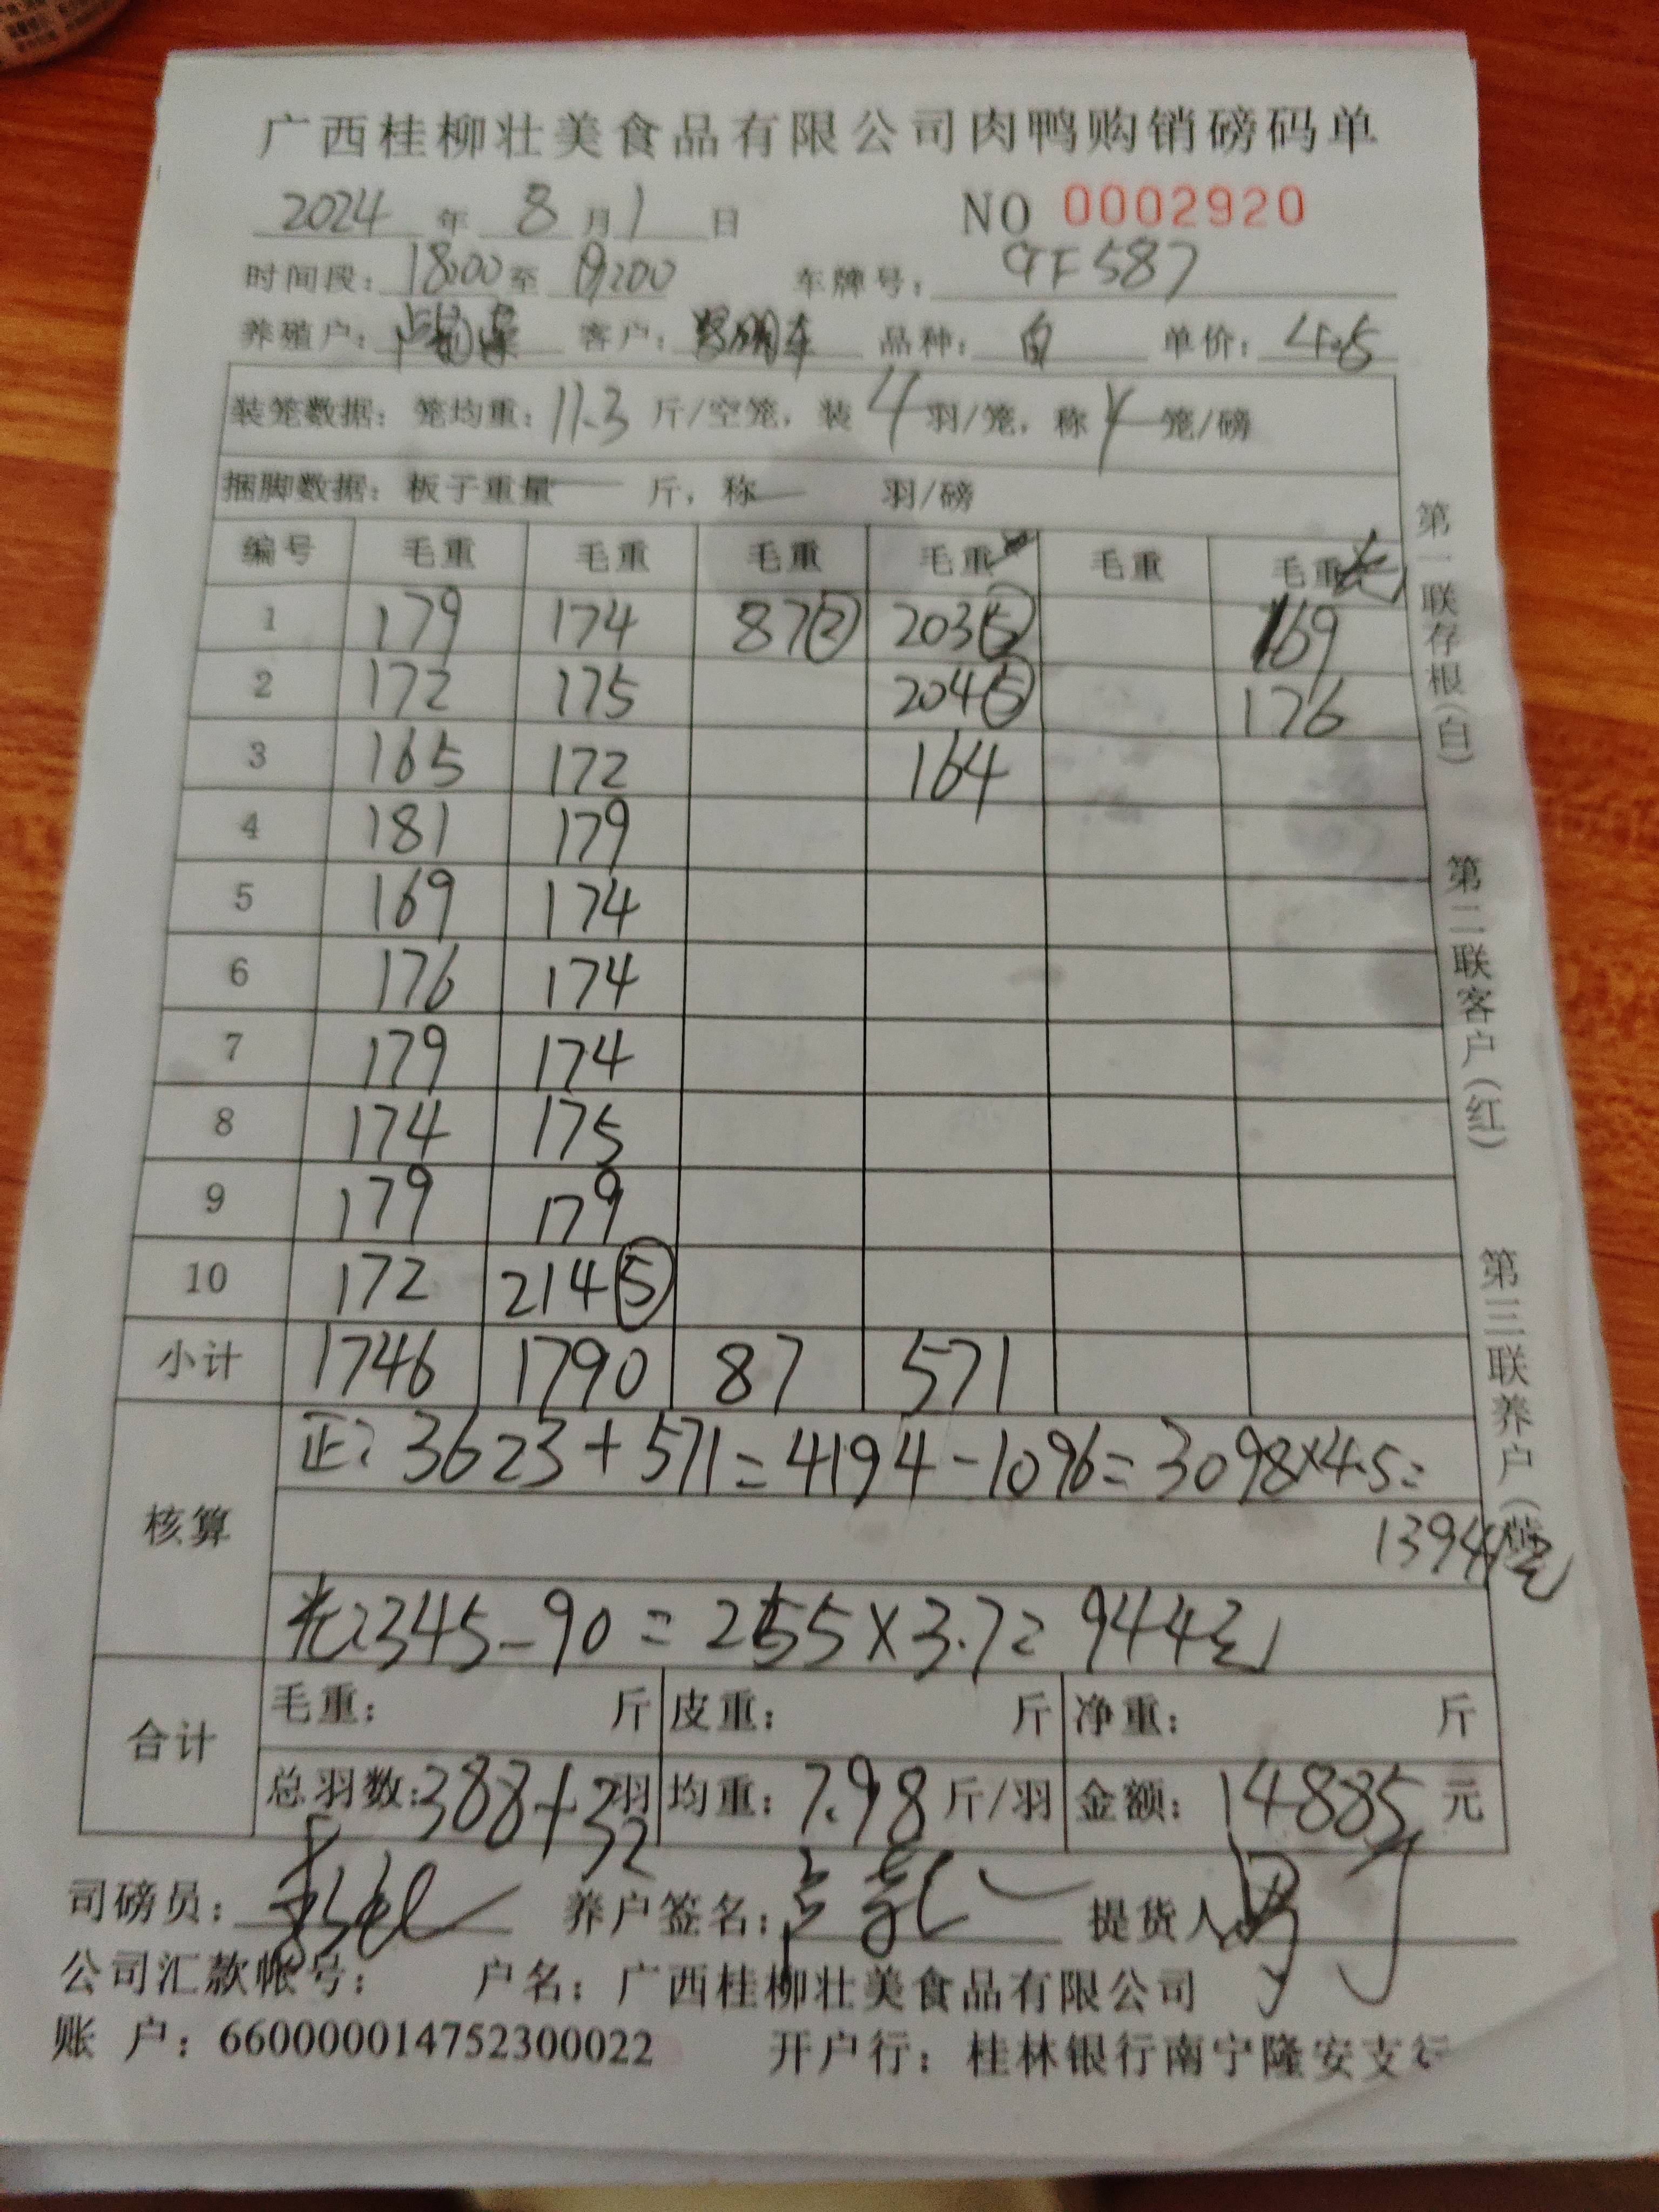 广西桂柳壮美食品有限公司肉鸭购销磅码单
2024 年 8 月 1 日 NO 0002920
时间段: 18:00 至 19:00 车牌号: 9TF587
养殖户: 客户: 品种: 白 单价: 4.5
装笼数据: 笼均重: 11.3 斤/空笼, 装 4 羽/笼, 称 4 笼/磅
捆脚数据: 板子重量 — 斤, 称 — 羽/磅
编号 毛重 毛重 毛重 毛重 毛重 毛重 光
1 179 174 87② 203⑤ 169
2 172 175 204⑤ 176
3 165 172 164
4 181 179
5 169 174
6 176 174
7 179 174
8 174 175
9 179 179
10 172 214⑤
小计 1746 1790 87 571
核算 正: 3623+571=4194-1096=3098×4.5=
13941元
光:345-90=255×3.7=944元
合计 毛重: 斤 皮重: 斤 净重: 斤
总羽数: 388+32 羽 均重: 7.98 斤/羽 金额: 14885 元
司磅员: 养户签名: 提货人
公司汇款帐号: 户名: 广西桂柳壮美食品有限公司
账 户: 660000014752300022 开户行: 桂林银行南宁隆安支行
第一联存根(白)
第二联客户(红)
第三联养户(